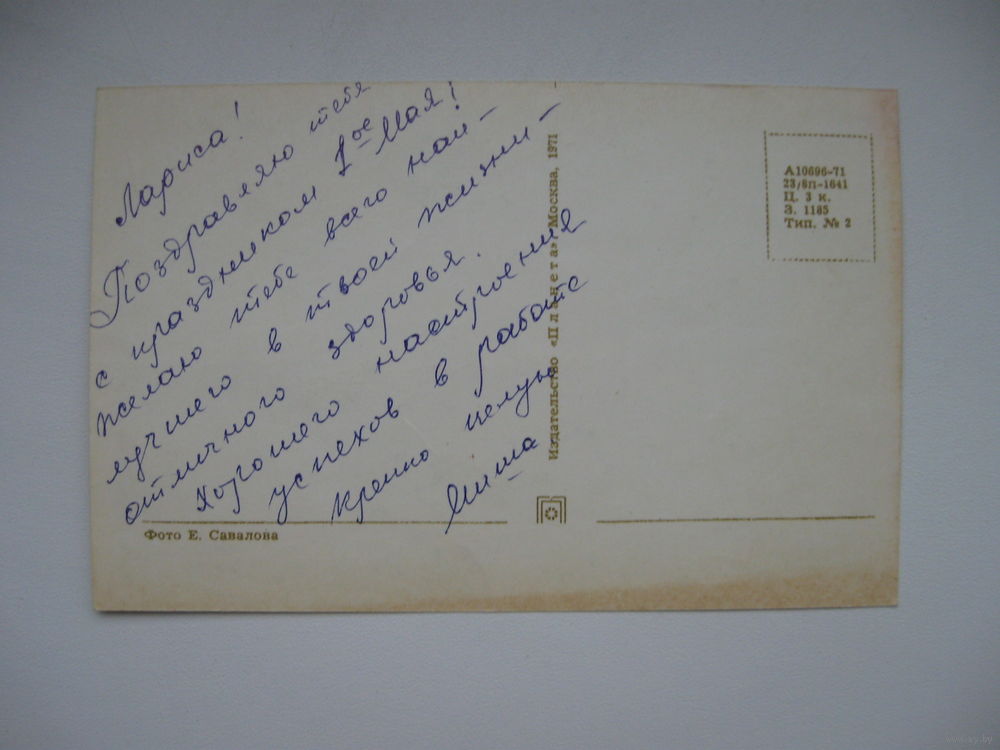 Лариса!
Поздравляю тебя
с праздником 1ое Мая!
желаю тебе всего наи-
лучшего в твоей жизни-
отличного здоровья.
Хорошего настроения
успехов в работе
Крепко целую
Миша
Фото Е. Савалова
Издательство «Планета» Москва, 1971
А10696-71
23/8п-1641
Ц. 3 к.
З. 1185
Тип. № 2
www.ay.by